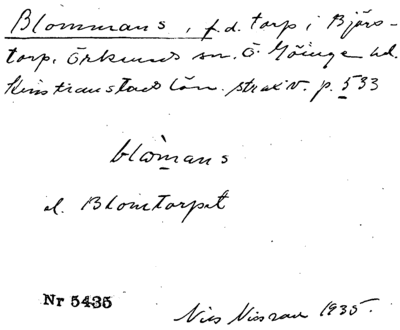 Blommans, f.d. torp i Björs-
torp, Örkeneds sn. Ö Göinge hd.
Kristianstads län. strax v. p. 533
blomans
el. Blomtorpet
Nr 5435
Nils Nilsson 1935.